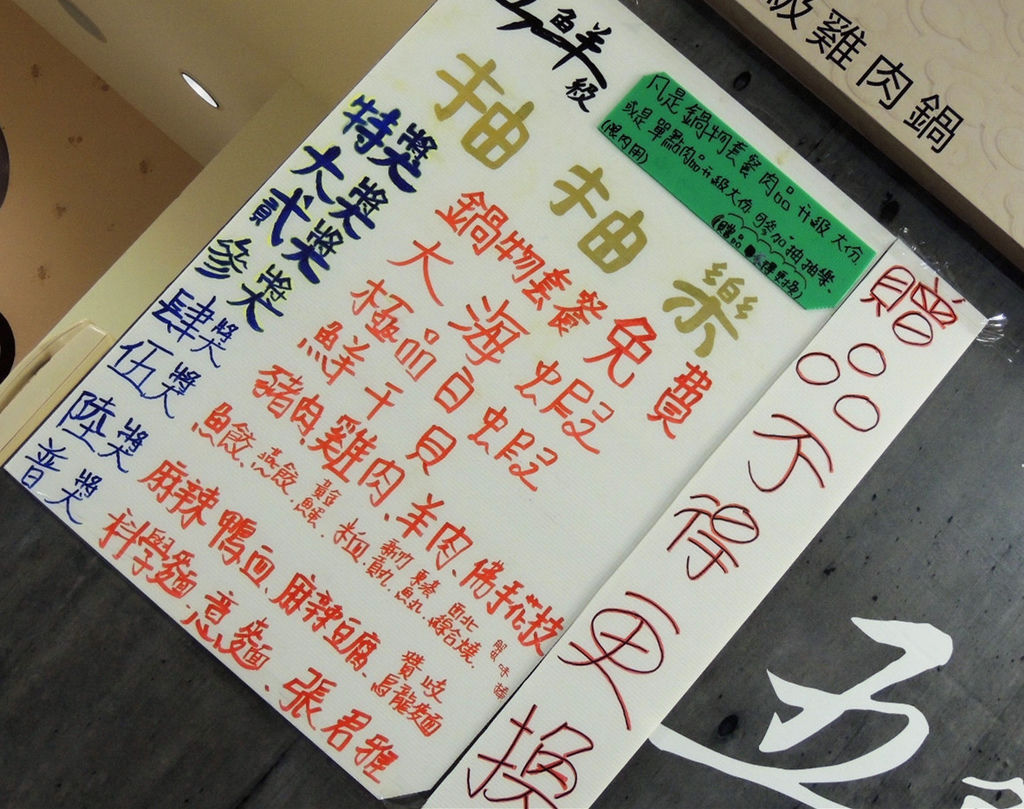 級雞肉鍋
鮮級
抽抽樂
凡是鍋物套餐肉品升級大份
或是單點肉品升級大份即參加抽抽樂.
(限內用)
特獎 鍋物套餐免費
大獎 大海蝦
貳獎 極品白蝦
參獎 鮮干貝
肆獎 豬肉.雞肉.羊肉.佛手花枝
伍獎 魚餃.燕餃.
陸獎 麻辣鴨血.麻辣豆腐.讚岐烏龍麵
普獎 科學麵.意麵.張君雅
贈品不得更換